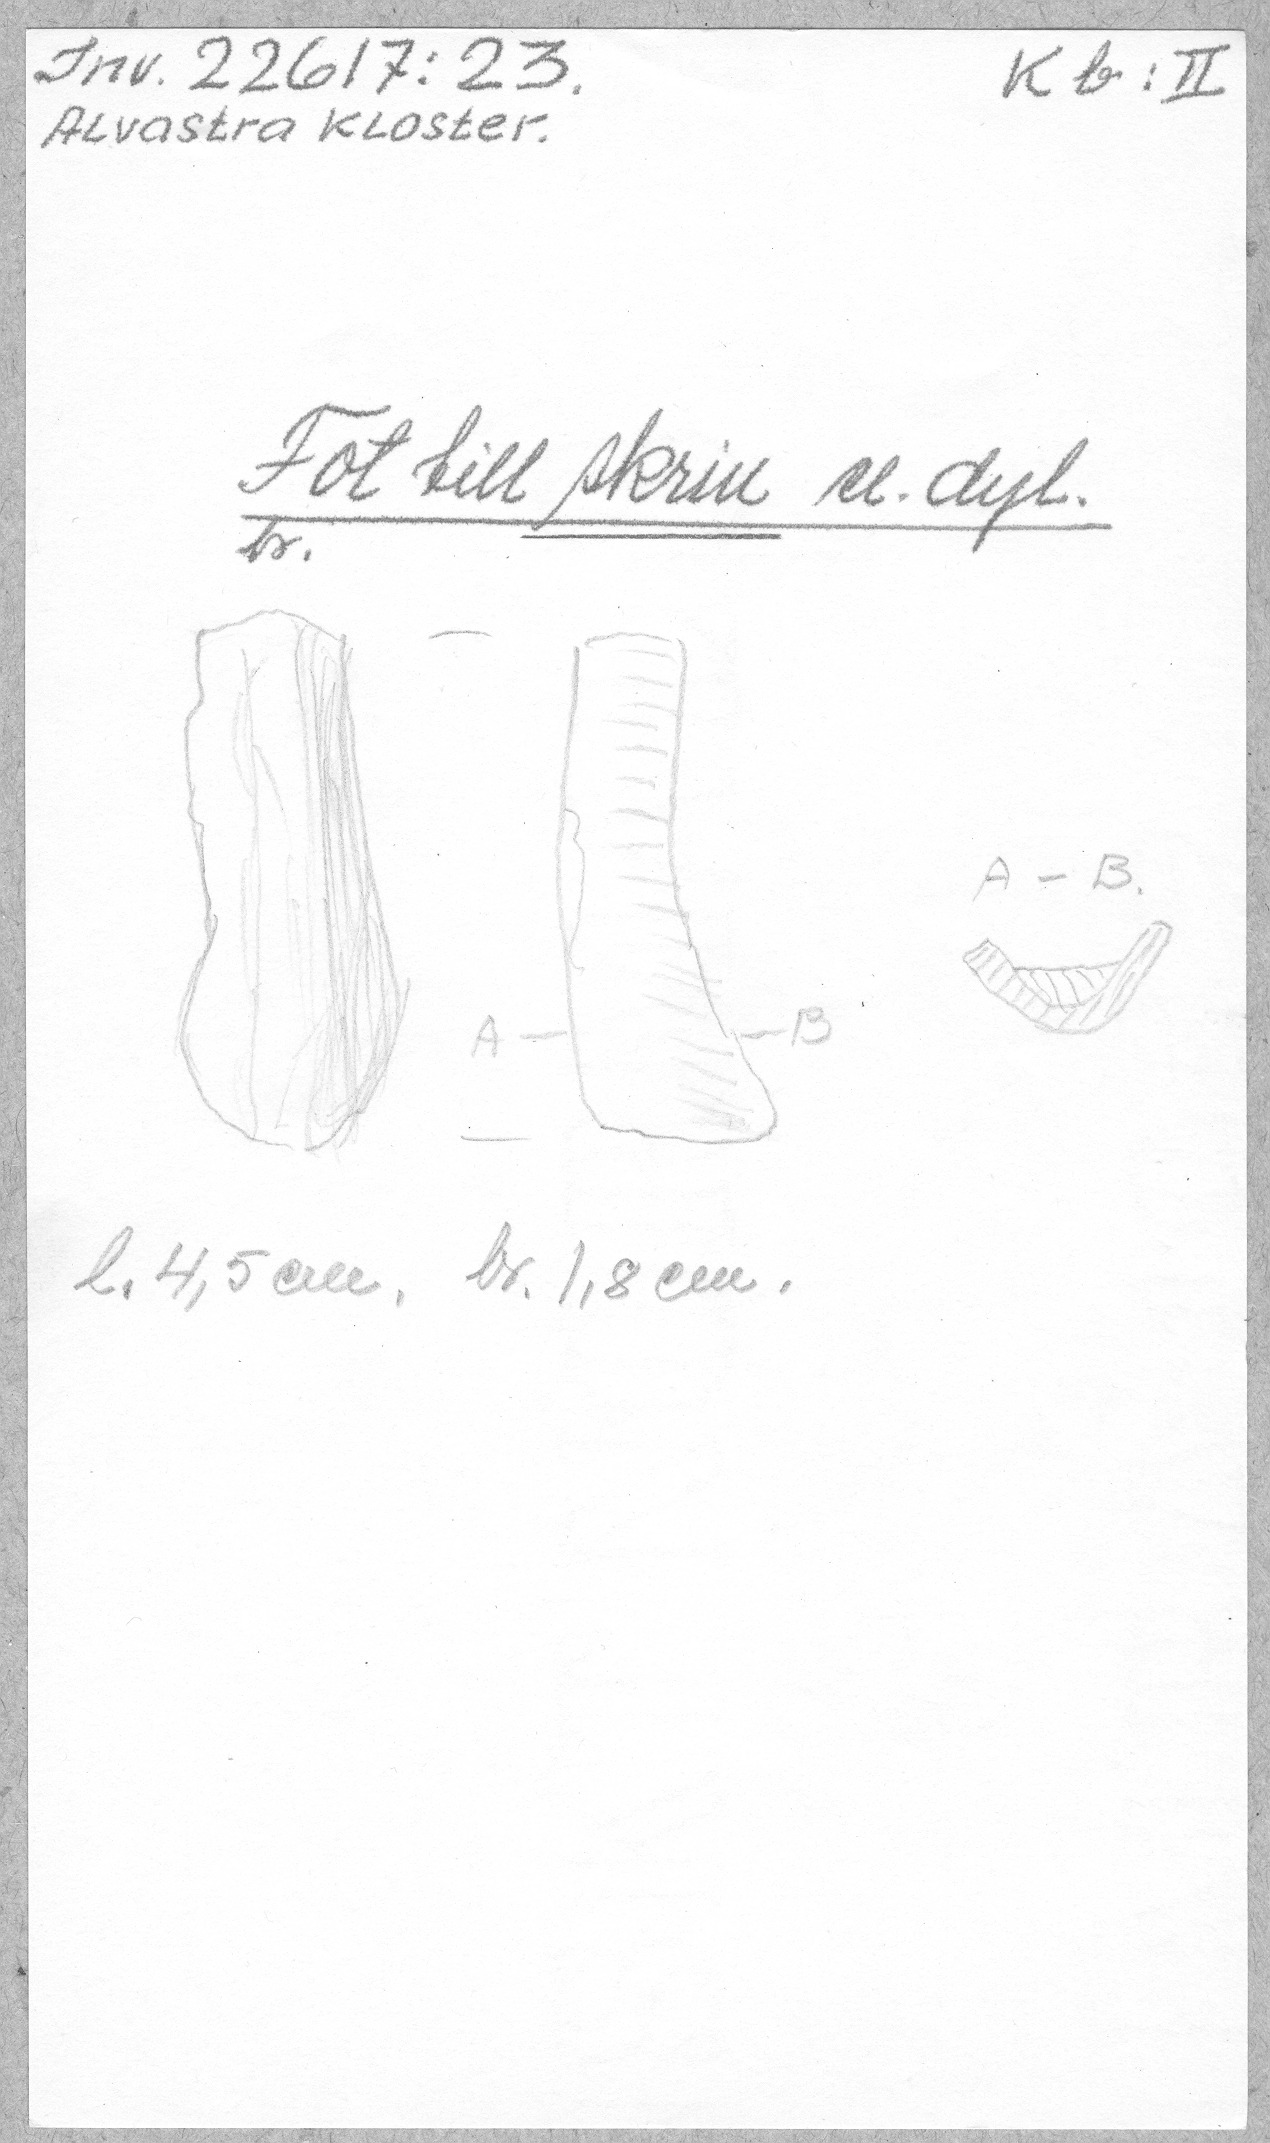 Inv. 22617:23.
Kb:II
Alvastra Kloster.
Fot till skrin el. dyl.
br.
A – B.
A – – B
l. 4,5 cm. br. 1,8 cm.